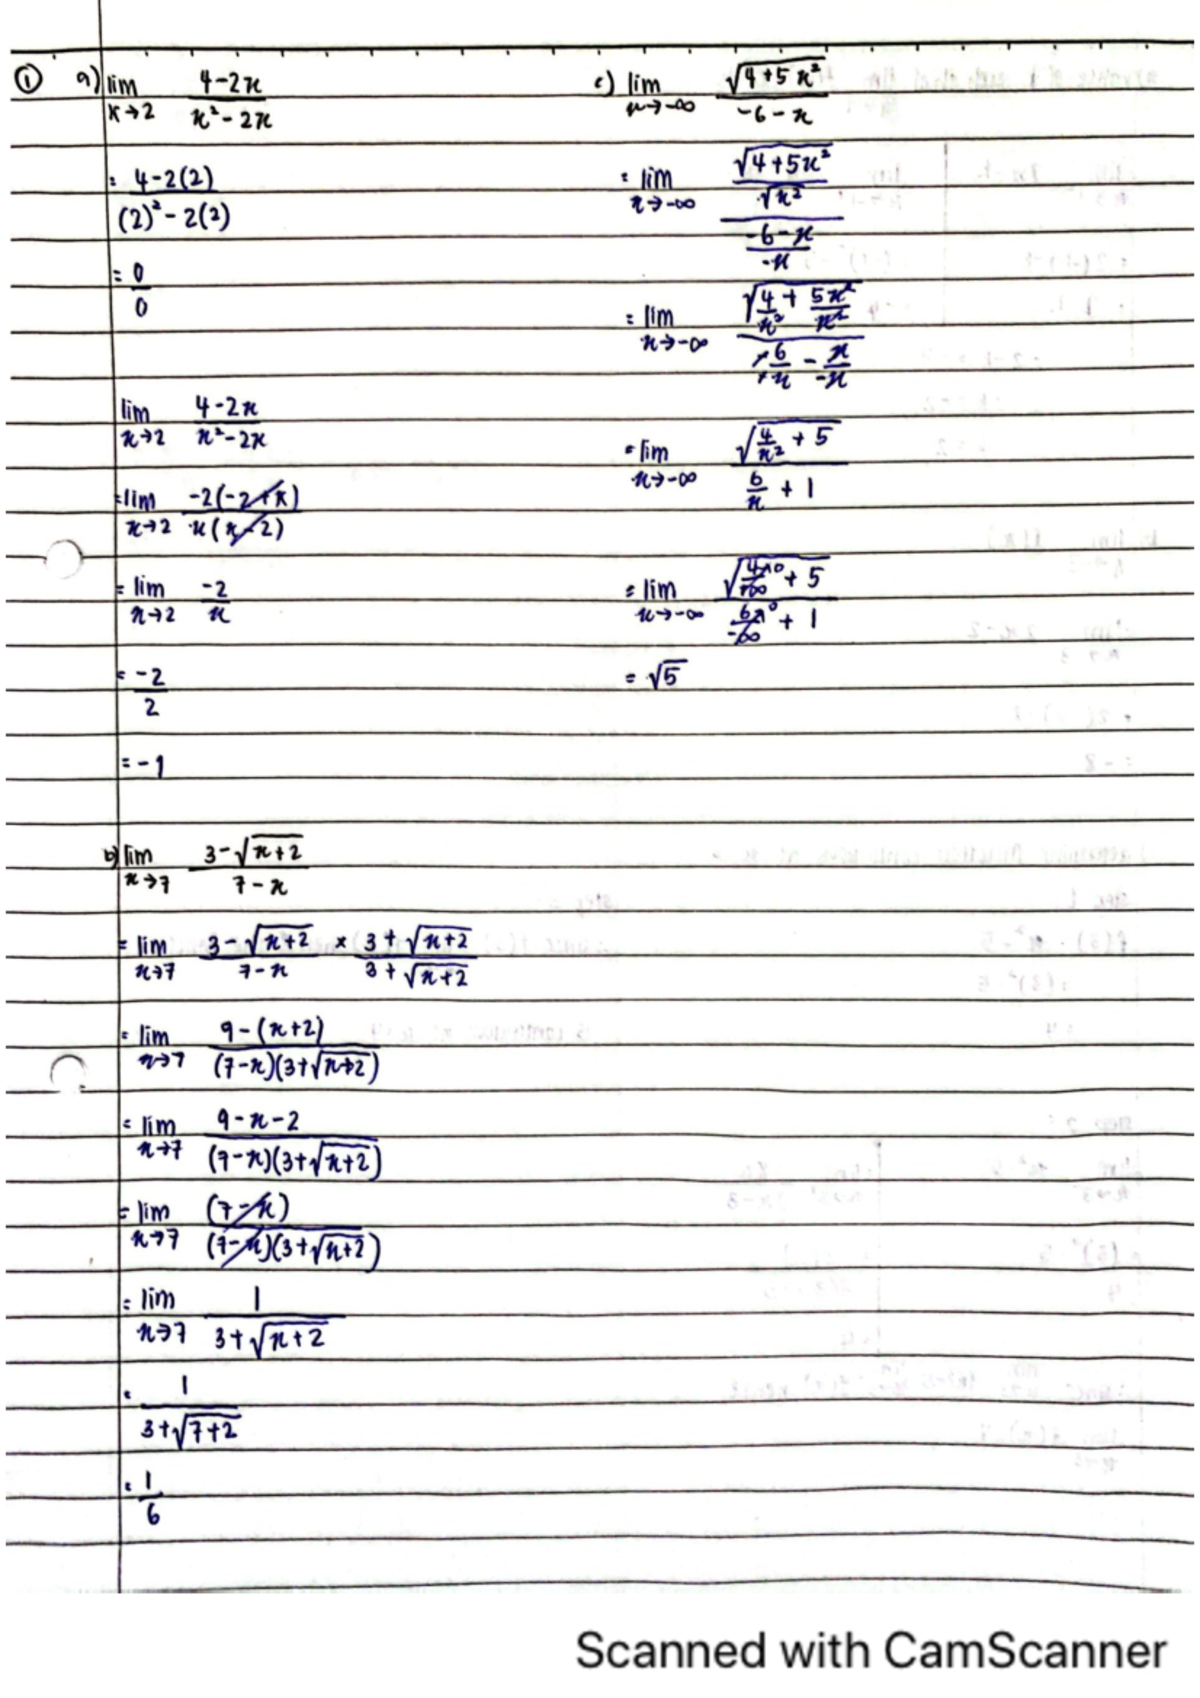 ① a) lim x→2 (4-2x)/(x²-2x)
= (4-2(2))/((2)²-2(2))
= 0/0
lim x→2 (4-2x)/(x²-2x)
= lim x→2 (-2(-2+x))/(x(x-2))
= lim x→2 -2/x
= -2/2
= -1
b) lim x→7 (3-√(x+2))/(7-x)
= lim x→7 (3-√(x+2))/(7-x) × (3+√(x+2))/(3+√(x+2))
= lim x→7 (9-(x+2))/((7-x)(3+√(x+2)))
= lim x→7 (9-x-2)/((7-x)(3+√(x+2)))
= lim x→7 (7-x)/((7-x)(3+√(x+2)))
= lim x→7 1/(3+√(x+2))
= 1/(3+√(7+2))
= 1/6
c) lim x→-∞ √(4+5x²)/(-6-x)
= lim x→-∞ (√(4+5x²)/√(x²))/((-6-x)/(-x))
= lim x→-∞ √(4/x² + 5x²/x²)/(6/x - x/(-x))
= lim x→-∞ √(4/x² + 5)/(6/x + 1)
= lim x→-∞ √(4/+∞ →0 + 5)/(6/-∞ →0 + 1)
= √5
Scanned with CamScanner